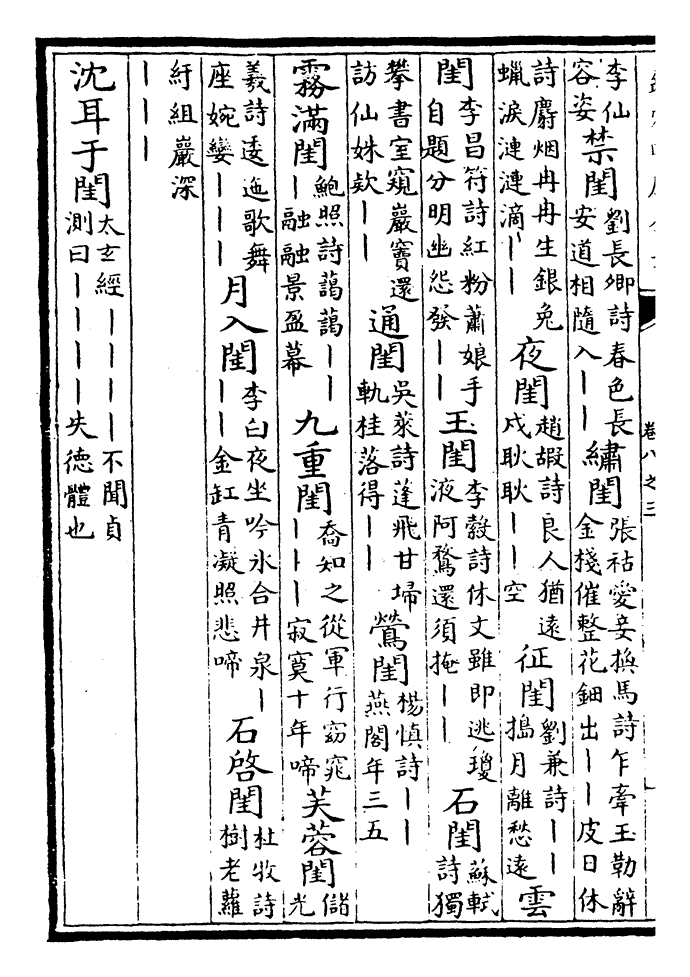 李仙容姿禁閨劉長卿詩春色長安道相隨入丨丨繡閨張祜愛妾換馬詩乍牽玉勒辭金棧催整花鈿出丨丨皮日休
詩麝烟冉冉生銀兔蠟淚漣漣滴丨丨夜閨趙嘏詩良人猶遠戍耿耿丨丨空征閨劉兼詩丨丨搗月離愁遠雲
閨李昌符詩紅粉蕭娘手自題分明幽怨發丨丨玉閨李縠詩休文雖即逃瓊液阿鶩還須掩丨丨石閨蘇軾詩獨
攀書室窺巖竇還訪仙姝欵丨丨通閨吳萊詩蓬飛甘埽軌桂落得丨丨鶯閨楊慎詩丨丨燕閣年三五
霧滿閨鮑照詩藹藹丨丨丨融融景盈幕九重閨喬知之從軍行窈窕丨丨丨寂寞十年啼芙蓉閨儲光
羲詩逶迤歌舞座婉孌丨丨丨月入閨李白夜坐吟氷合井泉丨丨丨金缸青凝照悲啼石啓閨杜牧詩樹老蘿
紆組巖深丨丨丨
沈耳于閨太玄經丨丨丨丨不聞貞測曰丨丨丨丨失德體也
卷八之三